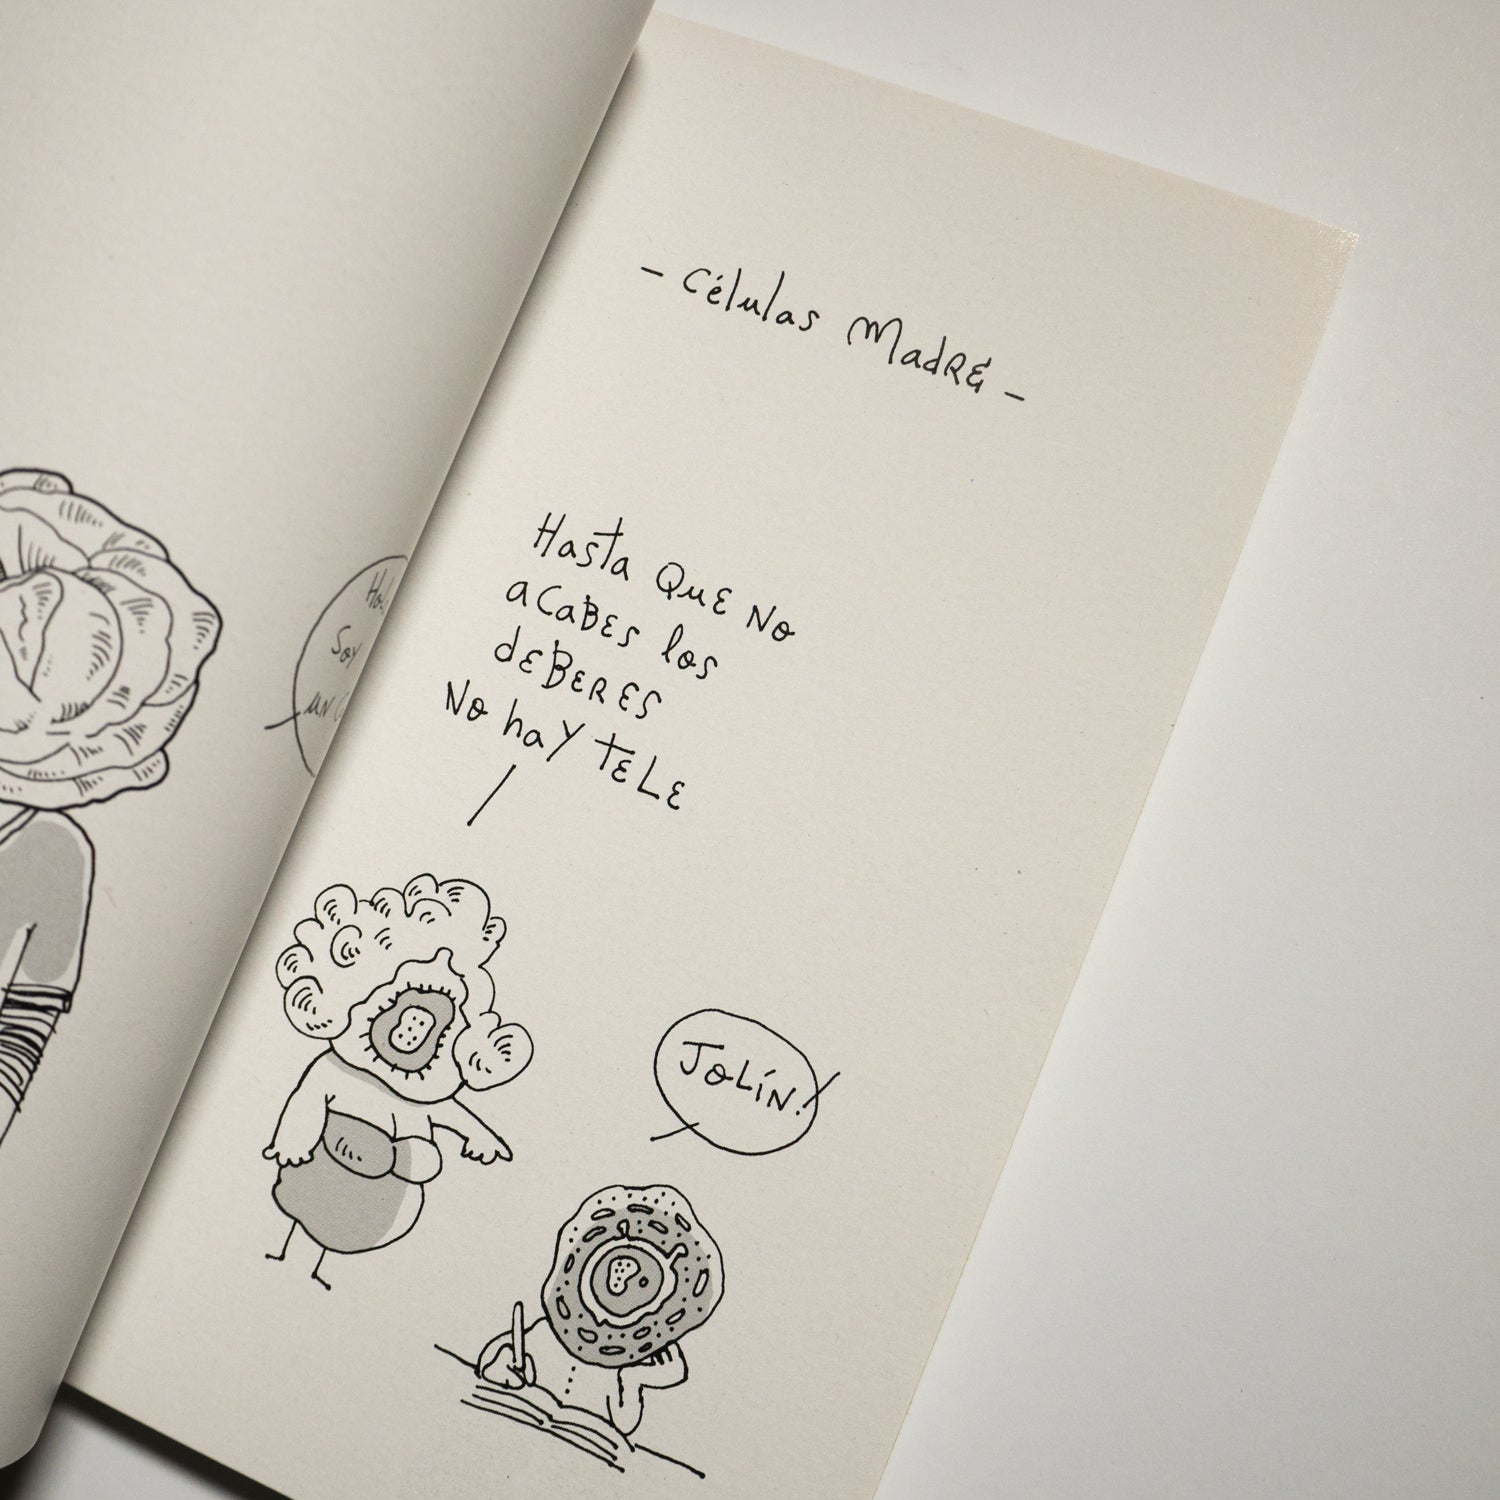 - Células Madre -
Hasta que no
acabes los
deberes
No hay tele
Jolín!
Soy